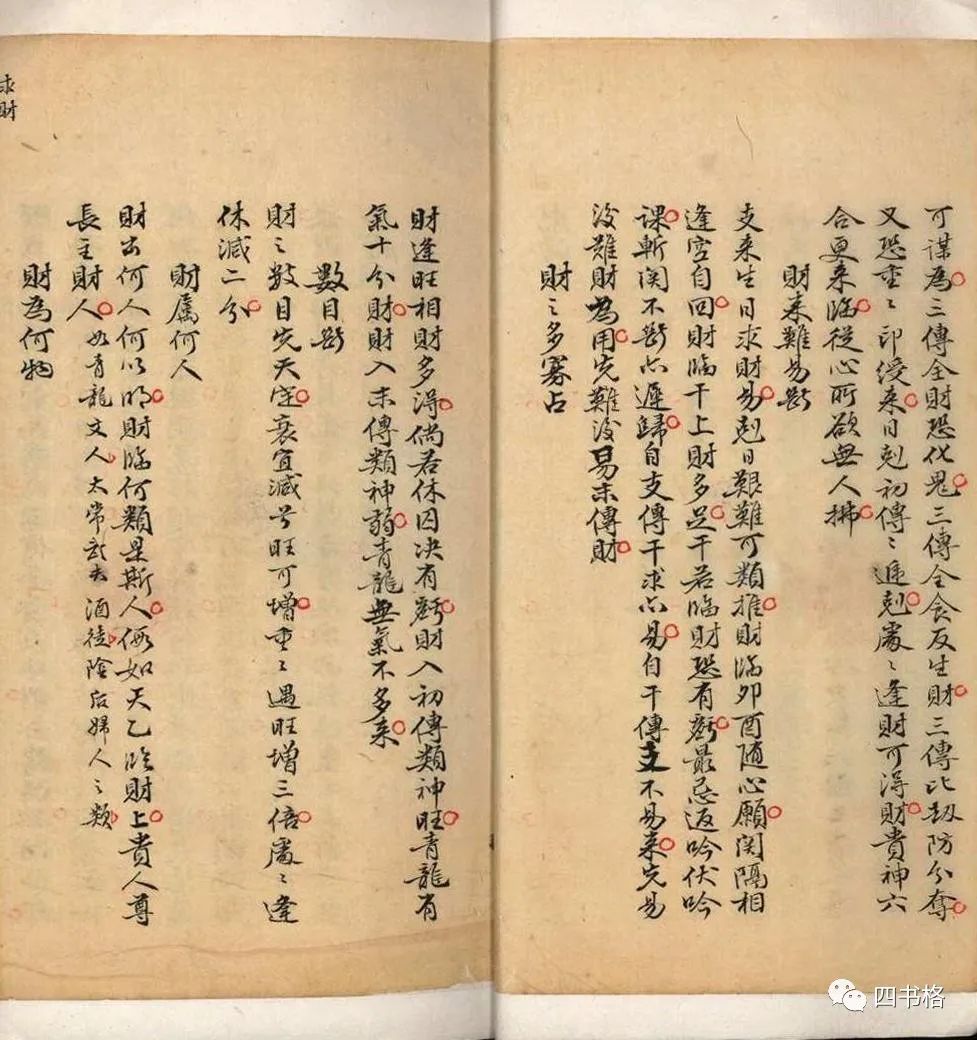 可謀為三傳全財恐化鬼三傳全食反生財三傳比劫防分奪
又恐重〻印綬来日剋初傳〻遞剋處〻逢財可得財貴神六
合更来臨從心所欲無人拂
財来難易斷
支来生日求財易剋日艱難可類推財臨卯酉随心願関隔相
逢空自回財臨干上財多足干若臨財恐有虧最忌返吟伏吟
課斬関不斷亦遲歸自支傳干求亦易自干傳支不易来先易
後難財為用先難後易末傳財
財〻多寡占
財逢旺相財多得倘若休囚决有虧財入初傳類神旺青龍有
氣十分財財入末傳類神弱青龍無氣不多来
數目斷
財〻數目先天定衰宜減兮旺可增重〻遇旺增三倍處〻逢
休減二分
財屬何人
財出何人何以明財臨何類是斯人假如天乙临財上貴人尊
長主財人如青龍文人太常武夫酒徒陰后婦人〻類
財為何物
求財
四书格